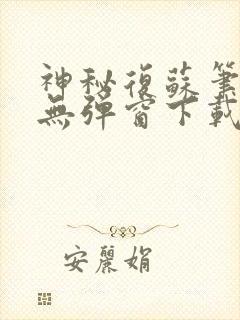 神秘復蘇筆
無彈窗下載
安麗娟